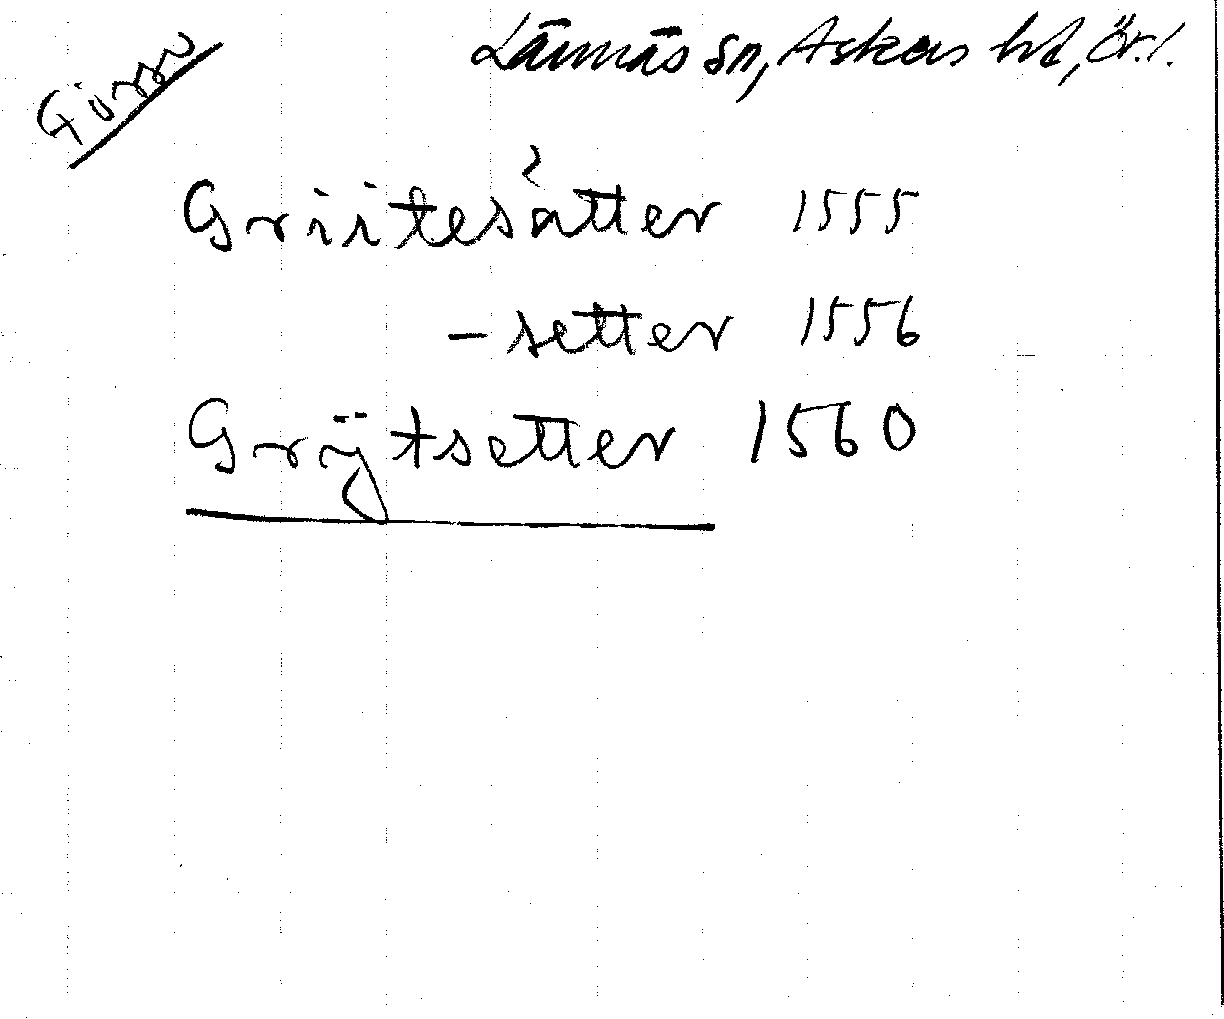 Försv
Lännäs sn, Askers hd, Ör. l.
Griitesåtter 1555
-setter 1556
Grÿtsetter 1560